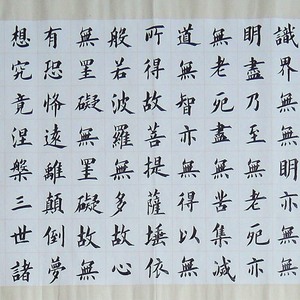 識界無無明亦無無
明盡乃至無老死亦
無老死盡無苦集滅
道無智亦無得以無
所得故菩提薩埵依
般若波羅蜜多故心
無罣礙無罣礙故無
有恐怖遠離顛倒夢
想究竟涅槃三世諸